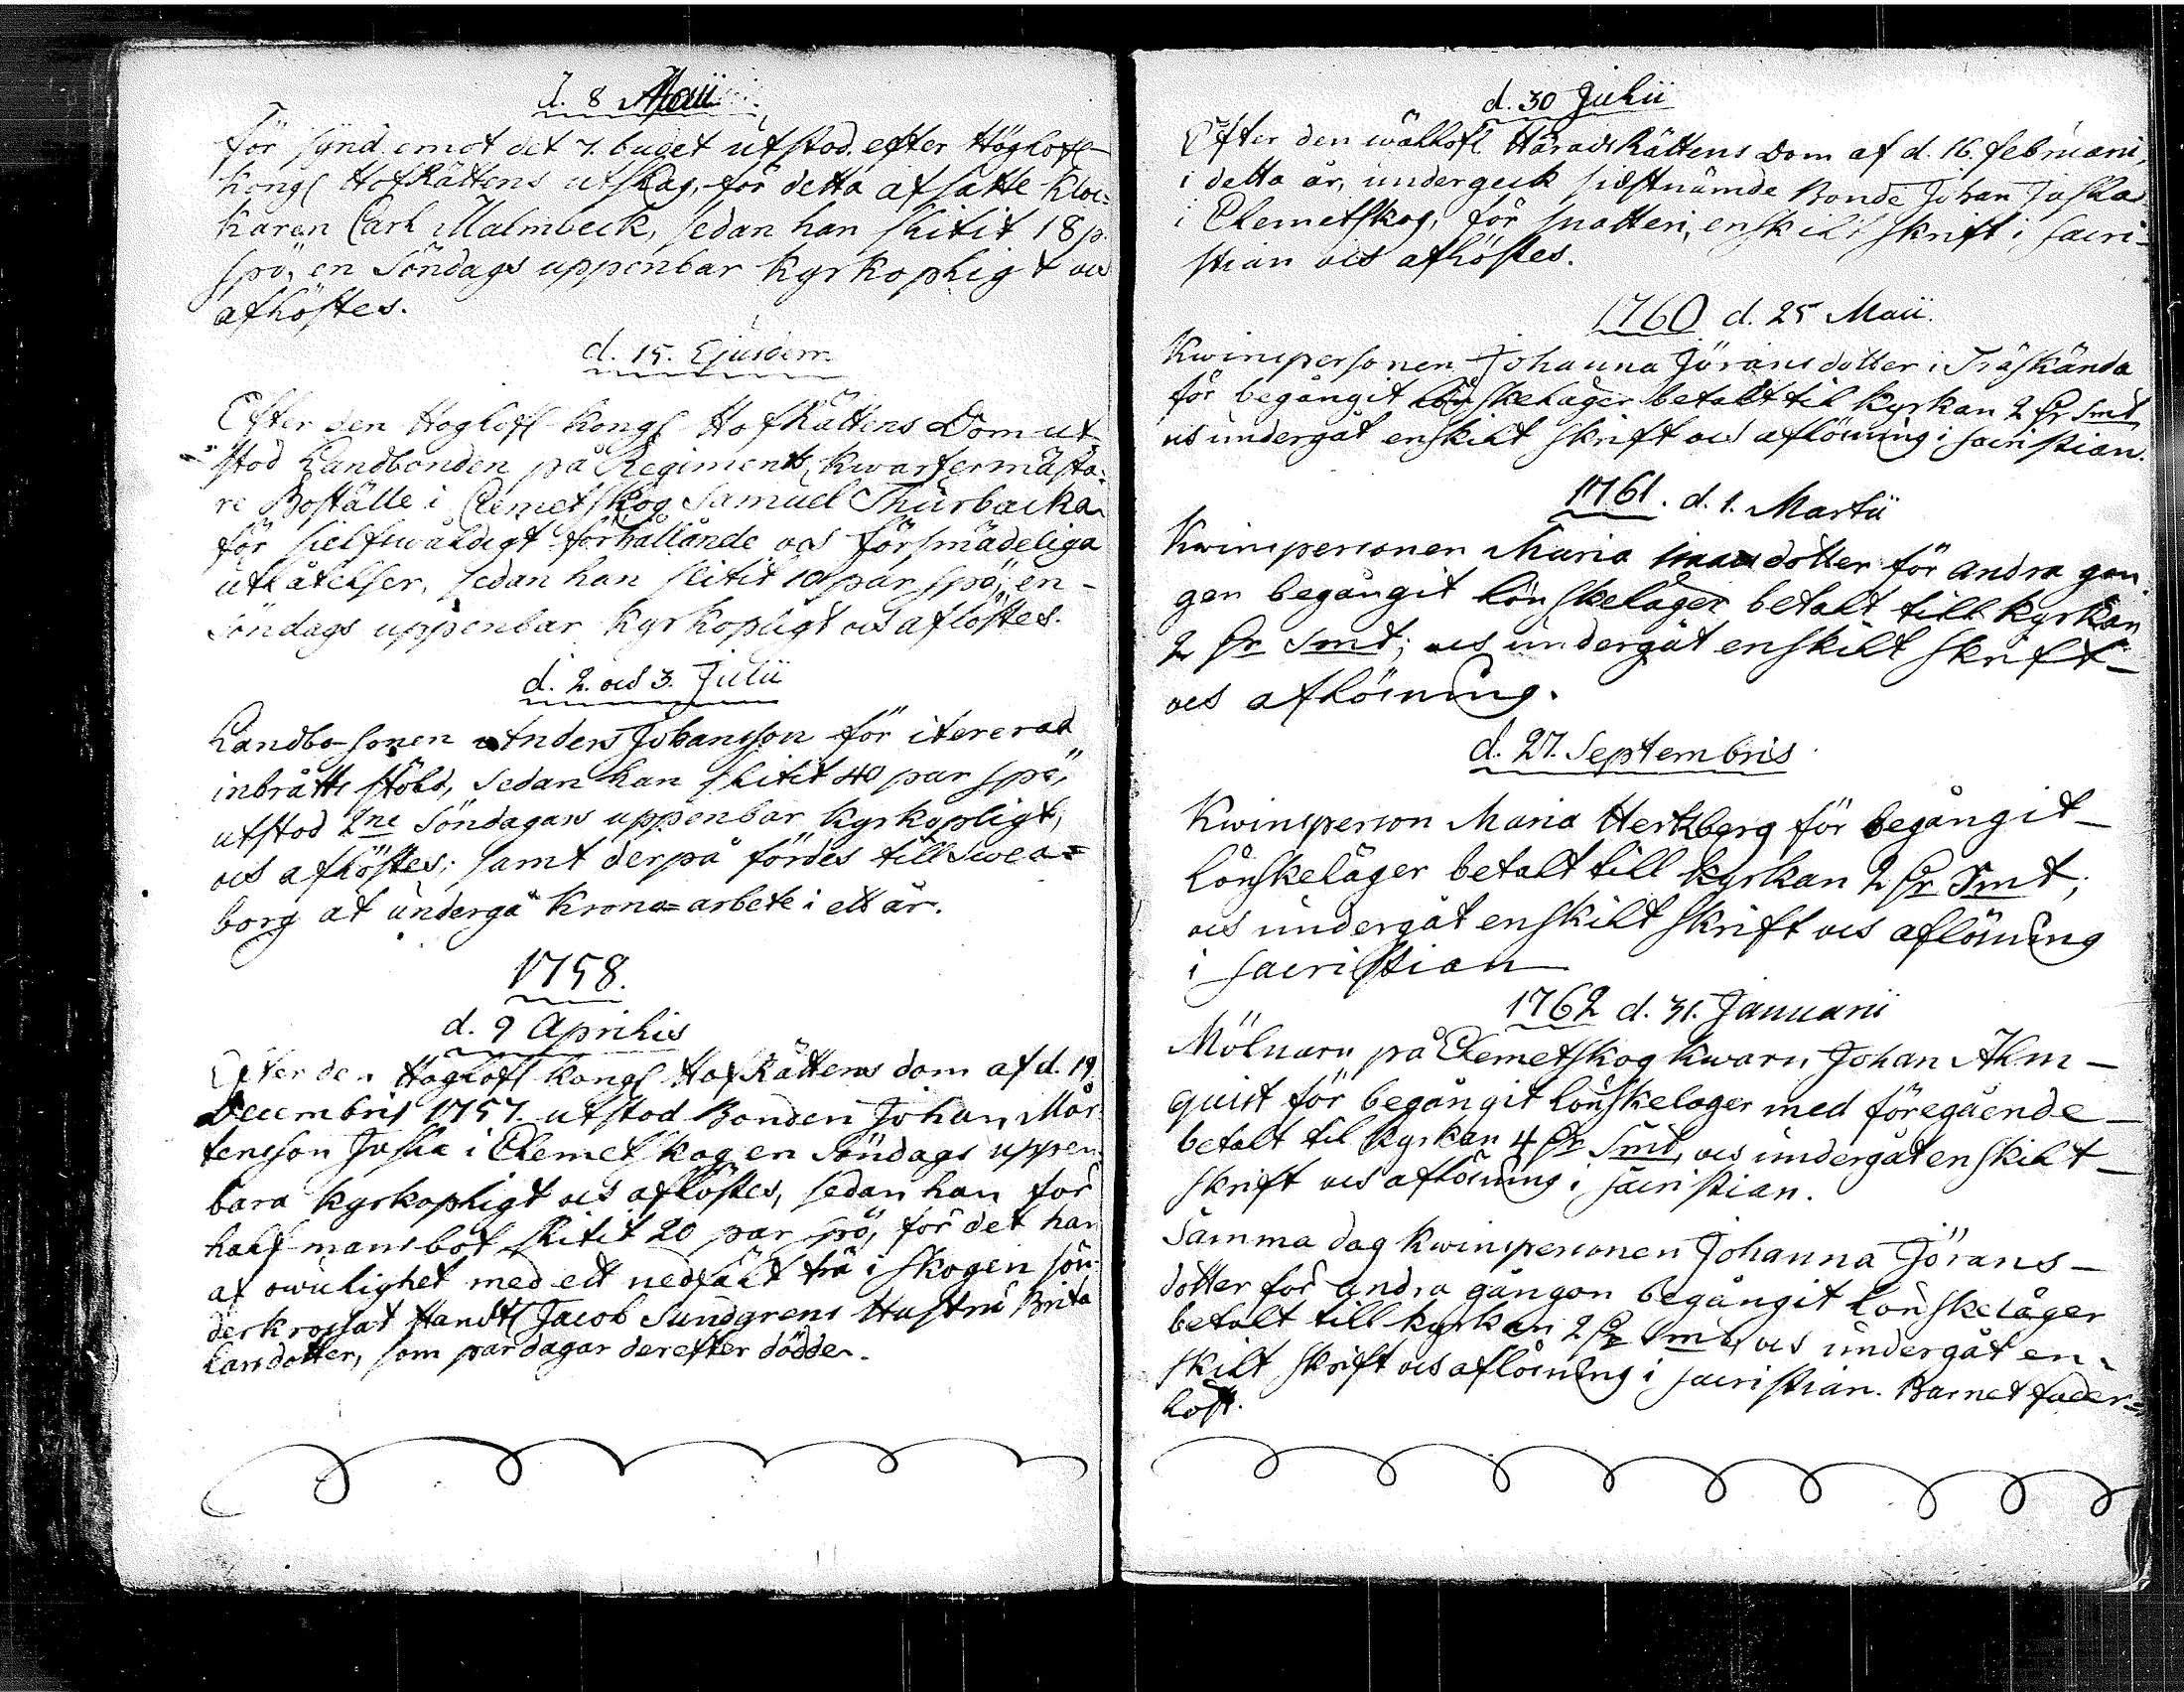 d. 8 Maii
för synd emot det 7. budet utstod efter Höglofl
Kongl HofRättens utslag, för detta afsatte Kloc=
karen Carl Malmbeck, sedan han slitit 18 p.
spö, en Söndags uppenbar kyrkopligt och
aflöstes.
d. 15. Ejusdem
Efter den Höglofl Kongl HofRättens Dom ut
stod Landbonden på Regiments kwartermästa=
re Boställe i Clemetskog Samuel Thurbacka
för sielfswåldigt förhållande och försmädeliga
utlåtelser, sedan han slitit 10 par spö, en
Söndags uppenbar kyrkopligt och aflöstes.
d. 2. och 3. Julii
Landbo-sonen Anders Johansson för itererad
inbråtts stöld, sedan han slitit 40 par spö,
utstod 2ne Söndagars uppenbar kyrkopligt,
och aflöstes; samt derpå fördes till Swea=
borg at undergå Krono=arbete i ett år.
1758.
d. 9 Aprilis
Efter den Höglofl Kongl HofRättens dom af d. 19
Decembris 1757. utstod Bonden Johan Mår
tensson Juska i Clemetskog en Söndags uppen
bara kyrkopligt och aflöstes, sedan han för
half mansbot slitit 20 par spö, för det han
af owulighet med ett nedfält trä i skogen sön
derkrossat Handtl Jacob Sundgrens Hustru Brita
Larsdotter, som par dagar derefter dödde.
d. 30 Julii
Efter den wällofl HäradsRättens Dom af d. 16. februarii,
i detta år, undergeck sidstnämde Bonde Johan Juska
i Clemetskog, för snatteri, enskilt skrift i sacri-
stian och aflöstes.
1760 d. 25 Maii.
Kwinspersonen Johanna Jöransdotter i Träskända
för begångit lönskeläger betalt til kyrkan 2 Pr Smt
och undergåt enskilt skrift och aflösning i sacristian.
1761. d. 1. Martii
Kwinspersonen Maria dotter för andra gån
gen begångit lönskeläger betalt till kyrkan
2 Pr Smt; och undergåt enskilt skrift
och aflösning.
d. 27. Septembris
Kwinsperson Maria Hertzberg för begångit
lönskeläger betalt till kyrkan 2 Pr Smt;
och undergåt enskilt skrift och aflösning
i sacristian
1762 d. 31. Januarii
Mölnarn på Clemetskog kwarn Johan Alm-
quist för begångit lönskeläger med föregående
betalt til kyrkan 4 Pr Smt, och undergåt enskilt
skrift och aflösning i sacristian.
Samma dag kwinspersonen Johanna Jörans-
dotter för andra gången begångit lönskeläger
betalt till kyrkan 2 Pr Smt, och undergåt en-
skilt skrift och aflösning i sacristian. Barnet fader=
löst.